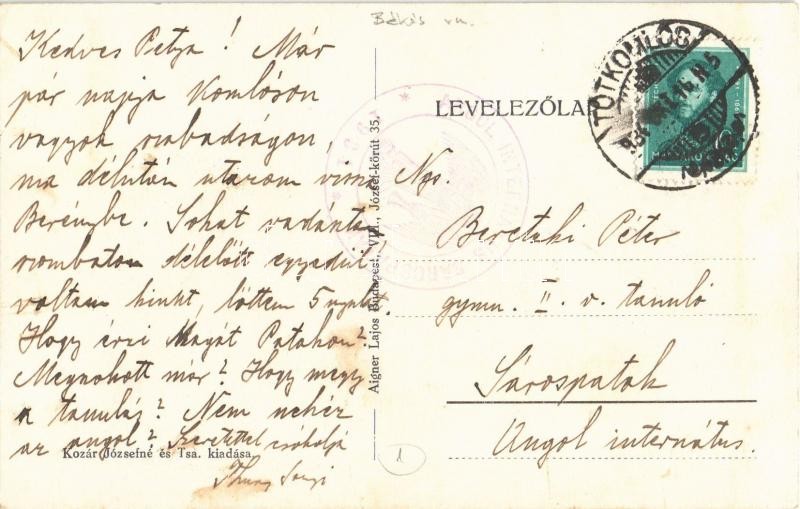 Békés vm.
Kedves Petya! Már
pár napja Komlóson
vagyok szabadságon,
ma délután utazom vissza
Berénybe. Sokat vadásztam,
szombaton délelőtt egyedül
voltam kinht, lőttem 5 nyulat.
Hogy érzi Magát Patakon?
Megszokott már? Hogy megy
a tanulás? Nem nehéz
az angol? Szeretettel csókolja
Kozár Józsefné és Tsa. kiadása.
Aigner Lajos Budapest, VIII., József-körút 35.
LEVELEZŐLAP
TÓTKOMLÓS
Ngs.
Beretzki Péter
gymn. II. v. tanuló
Sárospatak
Angol internátus.
1